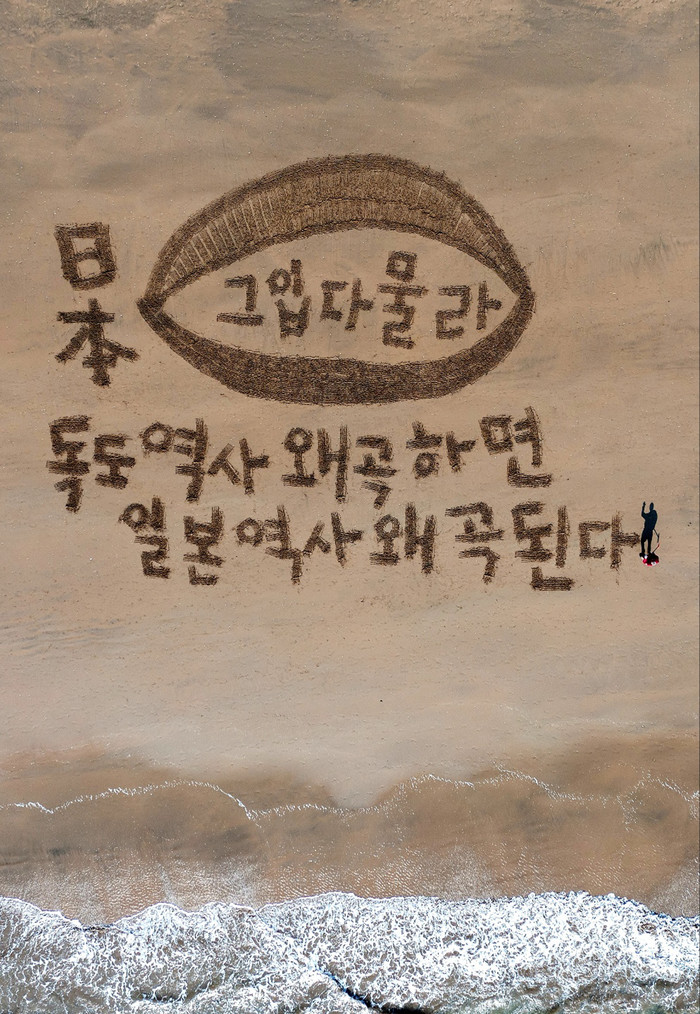 日本
그입다물라
독도역사왜곡하면
일본역사왜곡된다